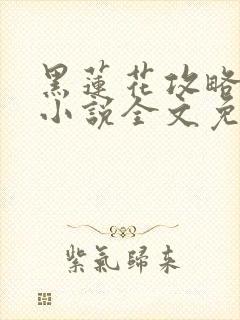 黑蓮花攻略
小説全文免
紫氣歸來